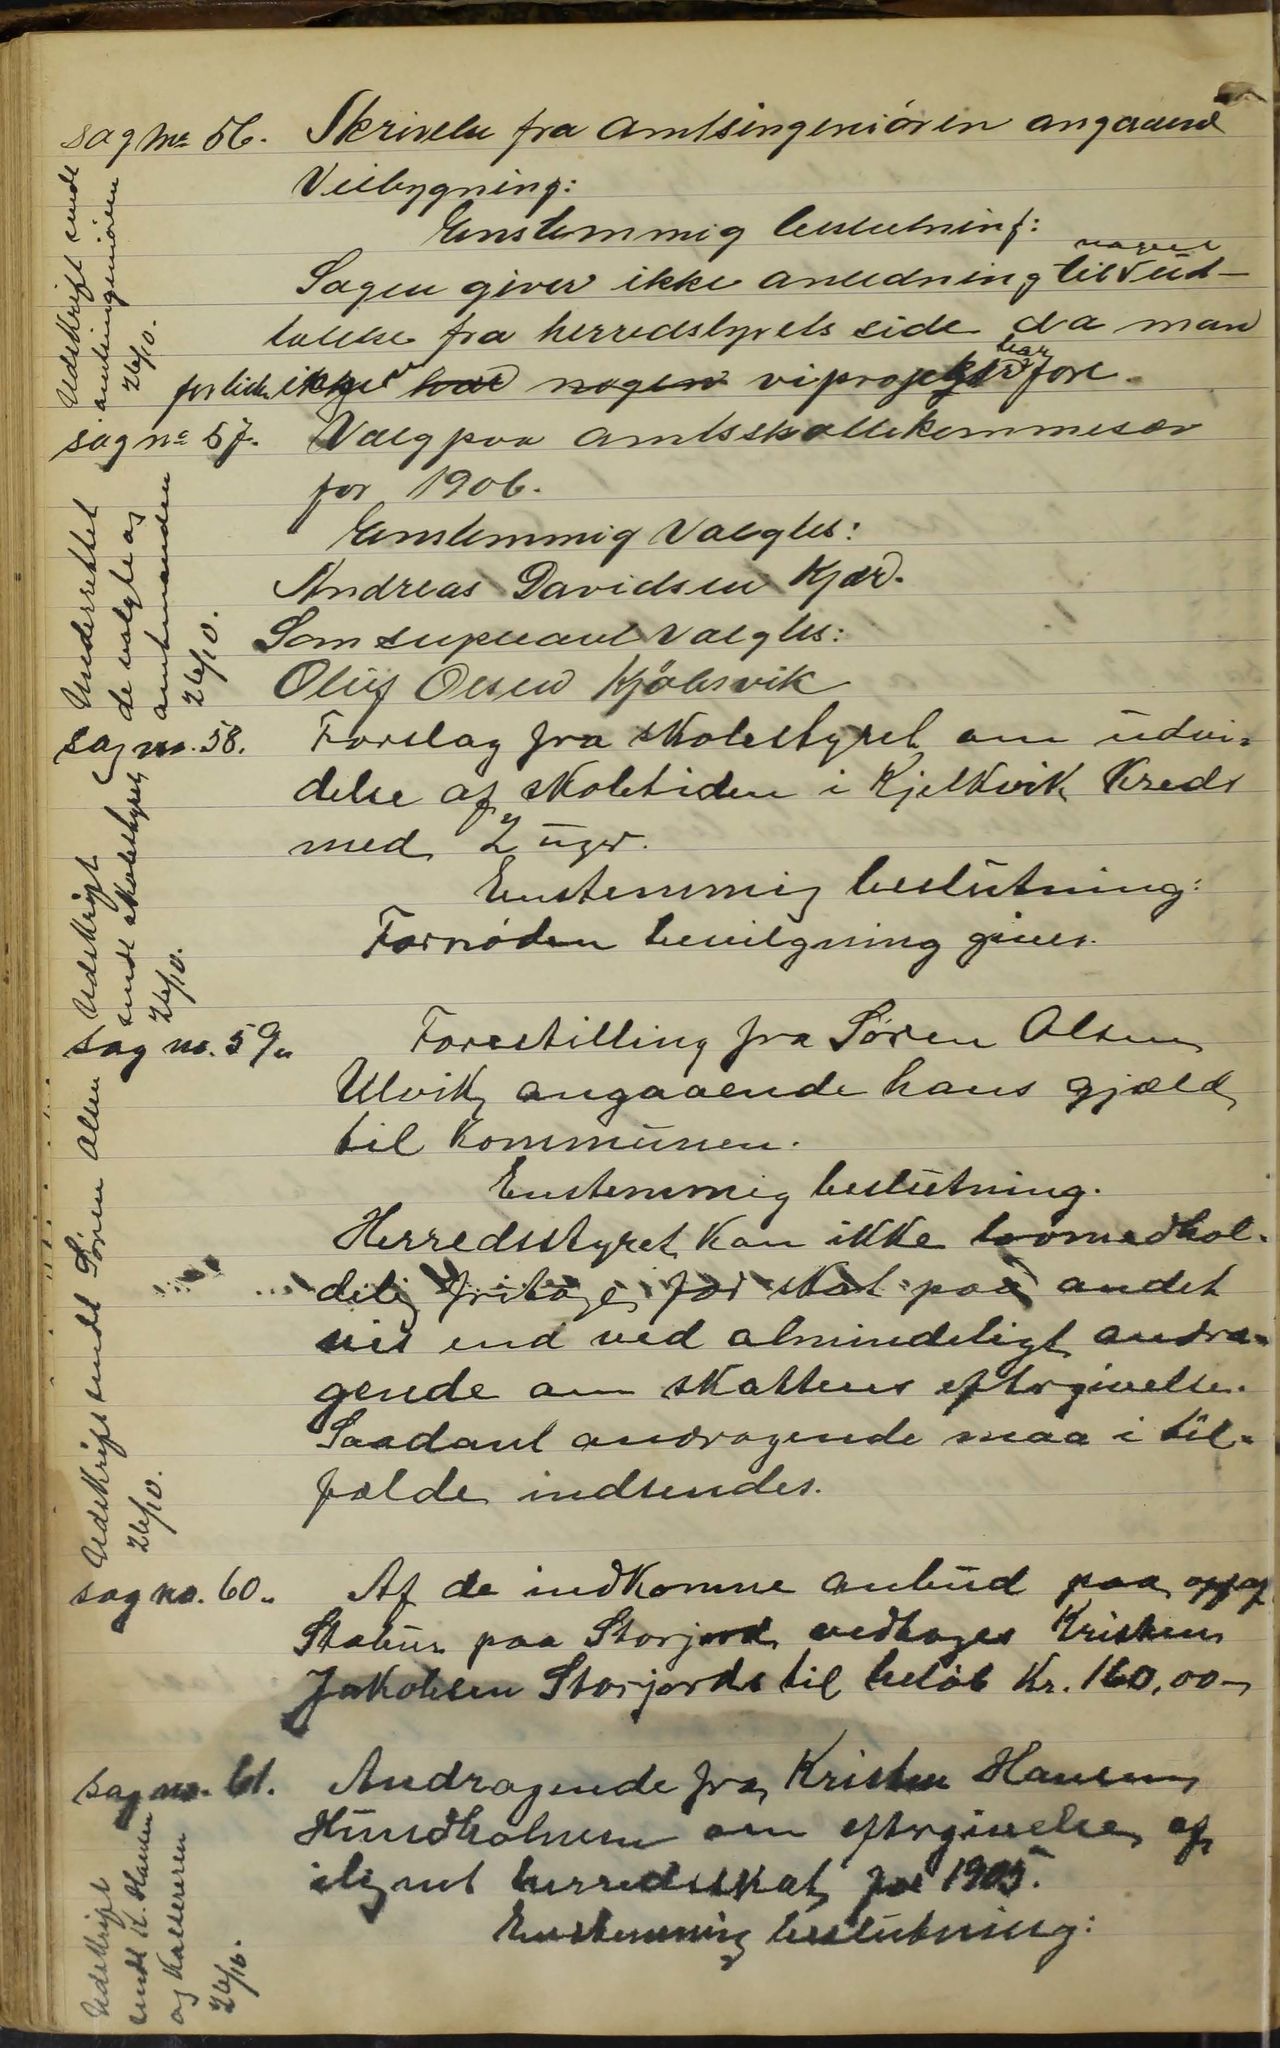 sag no 56. Skrivelse fra amtsingeniøren angaaend
Veibygning:
Enstemmig beslutning:
Sagen giver ikke anledning til nogen ud-
talelse fra herredstyrets side da man
for tiden ikke har nogen veiprojekter har fore.
Udskrift sendt
amtsingeniøren
26/10.
sag no 57. Valg paa amtsskattekommesær
for 1906.
Enstemmig Valgtes:
Andreas Davidsen Kjær.
Som supleant valgtes:
Oluf Olsen Kjøbsvik
Underrettet
de valgte og
amtmanden
26/10.
sag no. 58. Forslag fra skolestyret om udvi-
delse af skoletiden i Kjelkvik Kreds
med 2 uger.
Enstemmig beslutning:
Fornøden bevilgning gives.
Udskrift
sendt skolestyret
26/10.
sag no. 59. Forestilling fra Søren Olsen
Ulvik angaaende hans gjæld
til kommunen.
Enstemmig beslutning.
Herredsstyret kan ikke lovmedhol-
delig fritage for skat paa andet
vis end ved almindeligt andra-
gende om skattens eftergivelse.
Saadant andragende maa i til-
fælde indsendes.
Udskrift sendt Søren Olsen
26/10.
sag no. 60. Af de indkomne anbud paa opf. af
Stabur paa Storjord vedtoges Kristen
Jakobsen Storjords til beløb Kr. 160,00
sag no. 61. Andragende fra Kristen Hansen
Hundholmen om eftergivelse af
ilignet herredsskat for 1905.
Enstemmig beslutning:
Udskrift
sendt K. Hansen
og Kassereren
26/10.